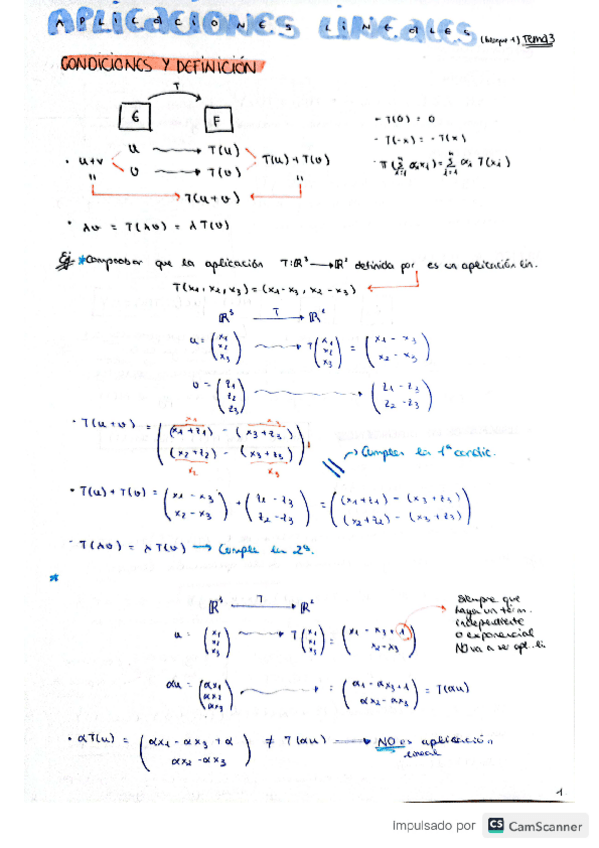 APLICACIONES LINEALES (bloque 1) Tema 3
CONDICIONES Y DEFINICIÓN
T
E F
- T(0) = 0
- T(-x) = - T(x)
· T(∑ αi xi) = ∑ αi T(xi)
u → T(u)
· u+v T(u) + T(v)
v → T(v)
" "
T(u+v)
· λv = T(λv) = λ T(v)
Ej * Comprobar que la aplicación T: ℝ³ → ℝ² definida por es un aplicación lin.
T(x1, x2, x3) = (x1 - x3, x2 - x3)
ℝ³ T→ ℝ²
u = (x1 x2 x3) → T(x1 x2 x3) = (x1 - x3 x2 - x3)
v = (z1 z2 z3) → (z1 - z3 z2 - z3)
x1 x3
· T(u+v) = ((x1+z1) - (x3+z3) (x2+z2) - (x3+z3))
x2 x3
→ Cumplen la 1ª condic.
· T(u) + T(v) = (x1 - x3 x2 - x3) + (z1 - z3 z2 - z3) = ((x1+z1) - (x3+z3) (x2+z2) - (x3+z3))
· T(λv) = λ T(v) → Cumple la 2ª.
*
ℝ³ T→ ℝ²
u = (x1 x2 x3) → T(x1 x2 x3) = (x1 - x3 + 1 x2 - x3)
siempre que
haya un térm.
independiente
o exponencial
NO va a ser apl. li
αu = (αx1 αx2 αx3) → = (αx1 - αx3 + 1 αx2 - αx3) = T(αu)
· αT(u) = (αx1 - αx3 + α αx2 - αx3) ≠ T(αu) → NO es aplicación
lineal
1
Impulsado por CS CamScanner